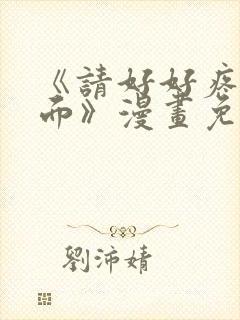 《請好好疼
而》漫畫免
劉沛婧